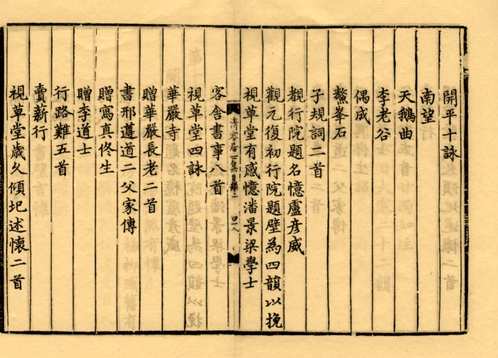 開平十詠
南望
天鵝曲
李老谷
偶成
鰲峯石
子規詞二首
都行院題名憶盧彥威
觀元復初行院題壁為四韻以挽
視草堂有感憶潘景梁學士
客舍書事八首
視草堂四詠
華嚴寺
贈華嚴長老二首
書邢遵道二父家傳
贈寫真佟生
贈李道士
行路難五首
賣薪行
視草堂歲久傾圯述懷二首